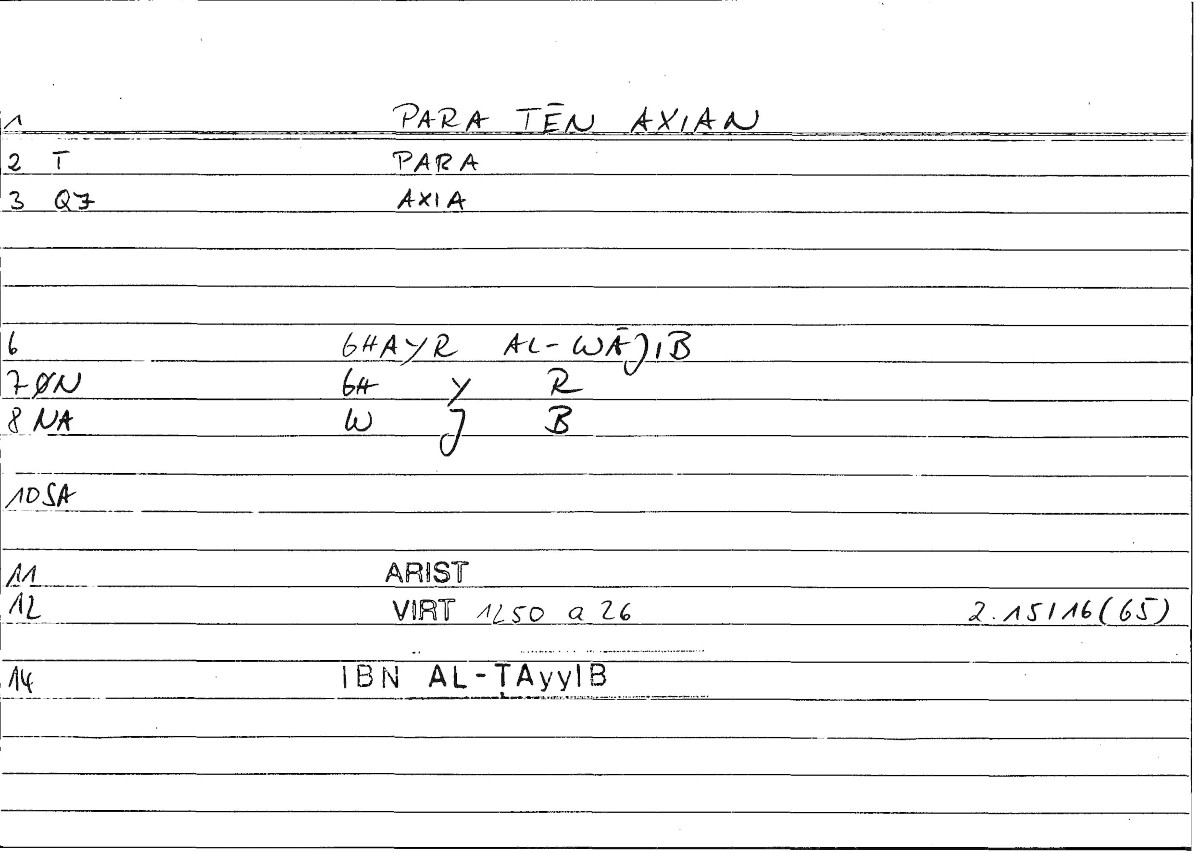 1 PARA TĒN AXIAN
2 T PARA
3 Q7 AXIA
6 GHAYR AL-WĀJIB
7 ØN GH Y R
8 NA W J B
10 SA
11 ARIST
12 VIRT 1250 a 26 2.15/16(65)
14 IBN AL-ṬAyyIB